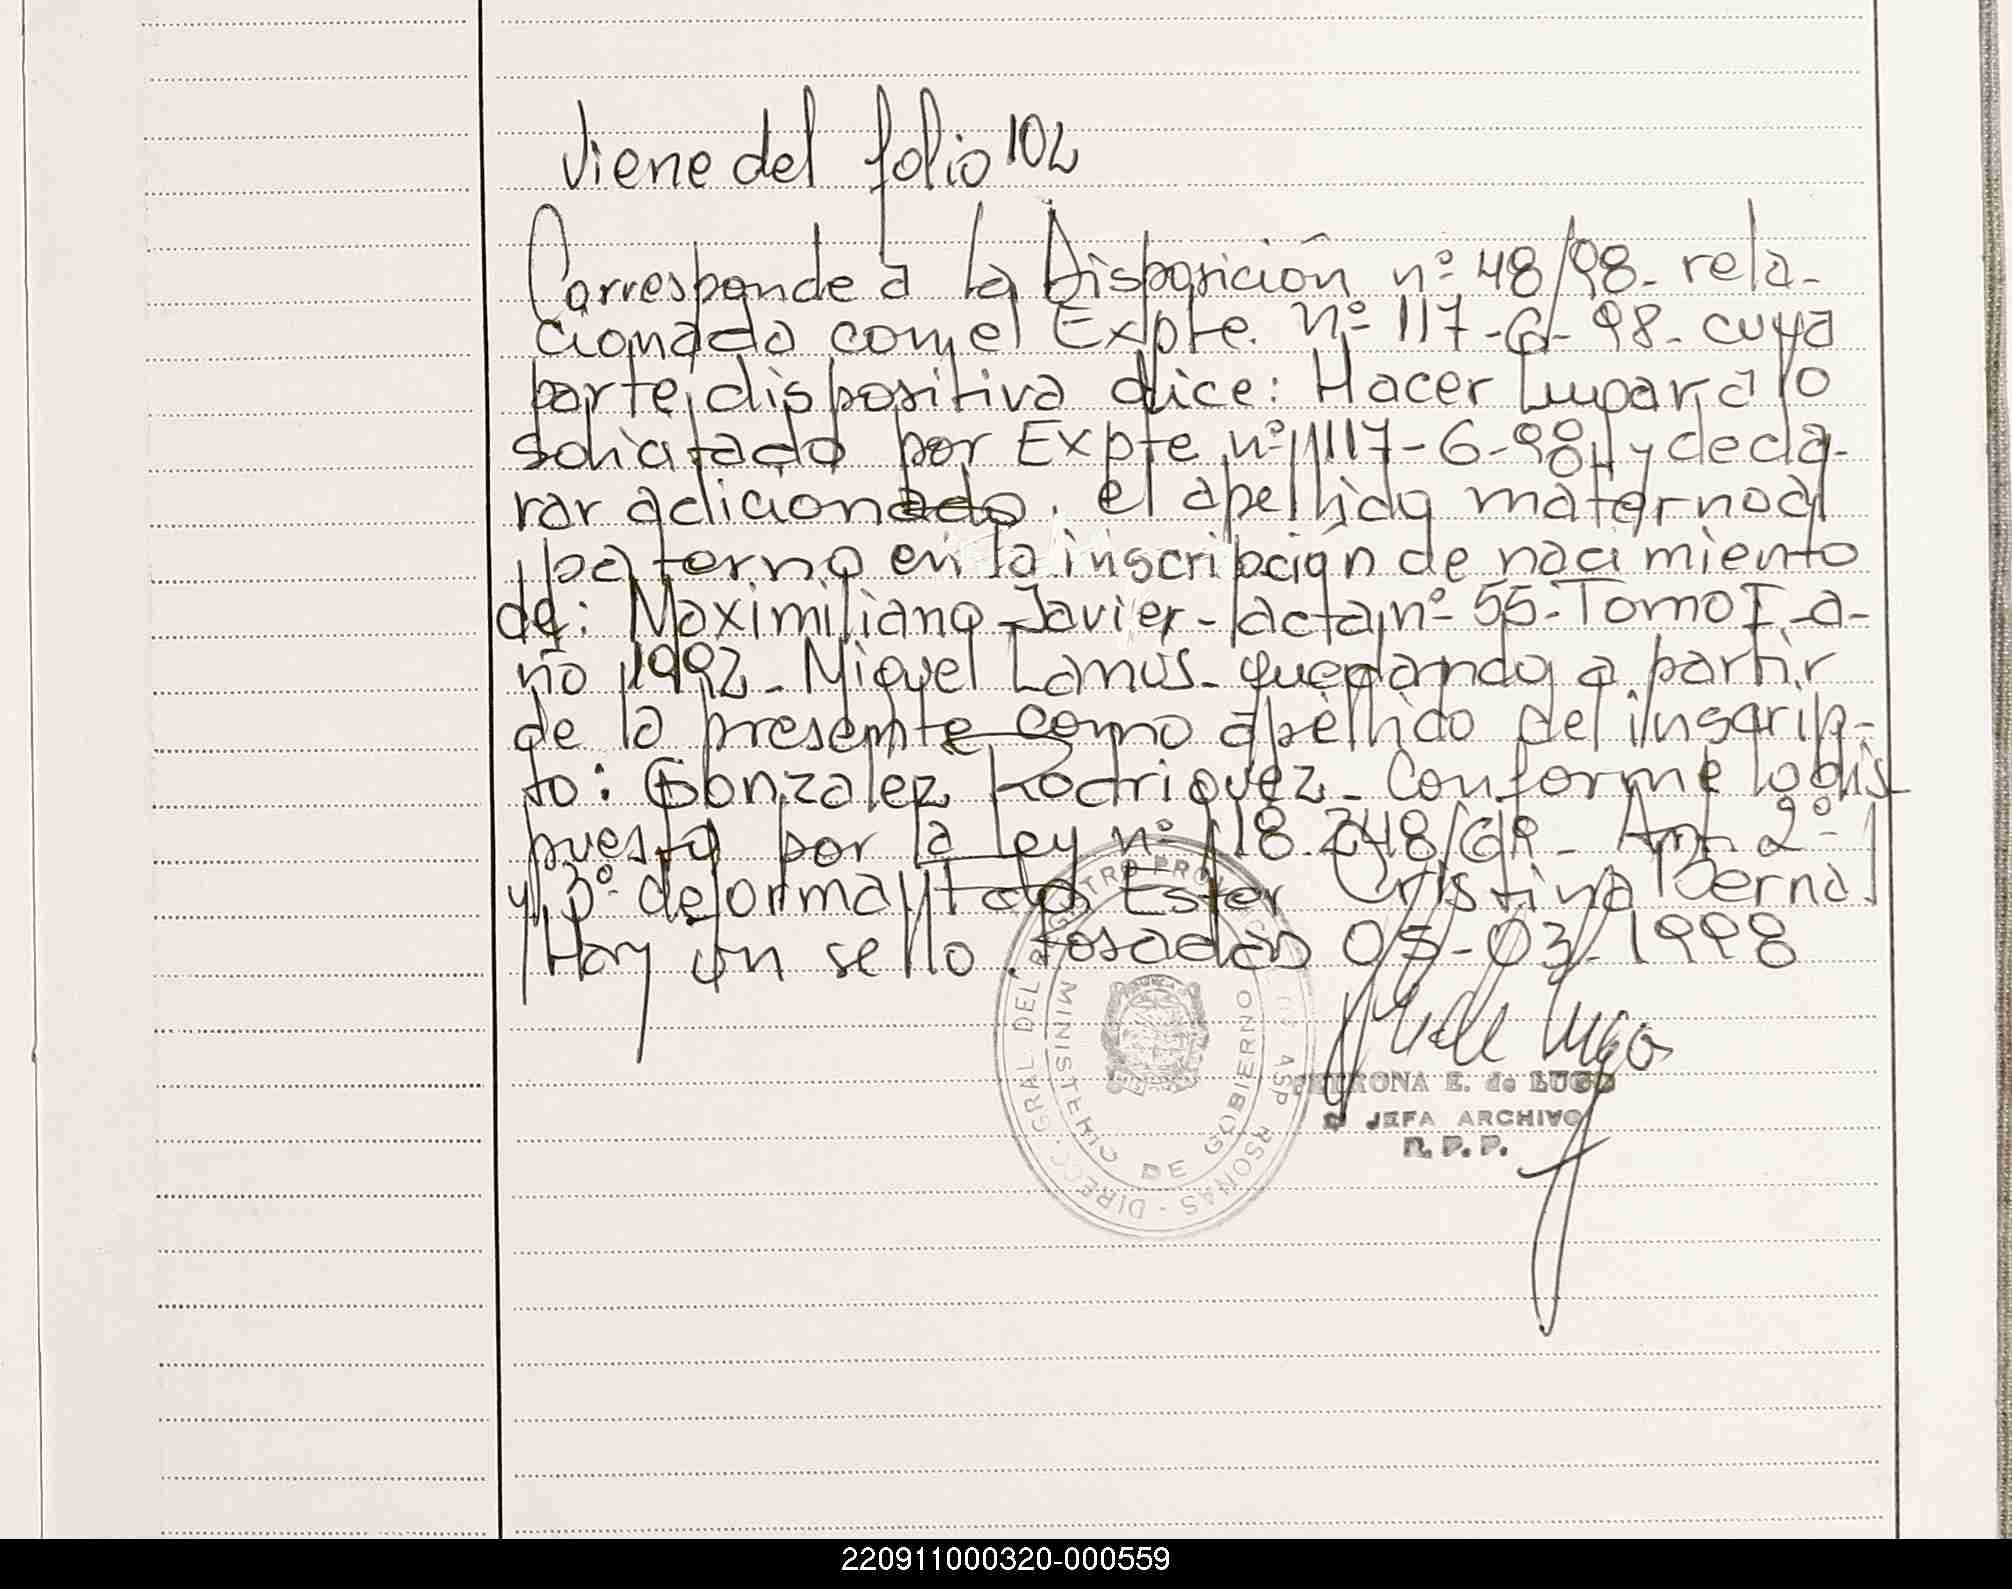 Viene del folio 102
Corresponde a la Disposición nº 48/98- rela-
cionado con el Expte. nº 117-G-98- cuya
parte dispositiva dice: Hacer Lugar a lo
solicitado por Expte nº 117-G-98 y decla-
rar adicionado. el apellido materno al
paterno en la inscripción de nacimiento
de: Maximiliano Javier- acta nº 55-Tomo I-a-
ño 1992- Miguel Lanus- quedando a partir
de la presente como apellido del inscrip-
to: Gonzalez Rodriguez- Conforme lo dis-
puesto por la Ley nº 18.248/69- Art. 2º-
y 3º- de forma Ester Cristina Bernal
Hay un sello. Posadas 05-03-1998
PETRONA E. de LUGO
JEFA ARCHIVO
R. P. P.
DIREC. GRAL DEL REGISTRO PROV. DE LAS PERSONAS -
MINISTERIO DE GOBIERNO
220911000320-000559